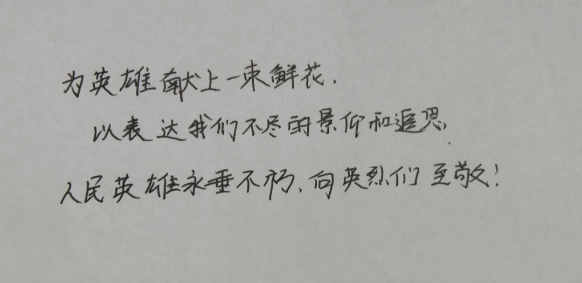 为英雄献上一束鲜花.
以表达我们不尽的景仰和追思,
人民英雄永垂不朽、向英烈们至敬!